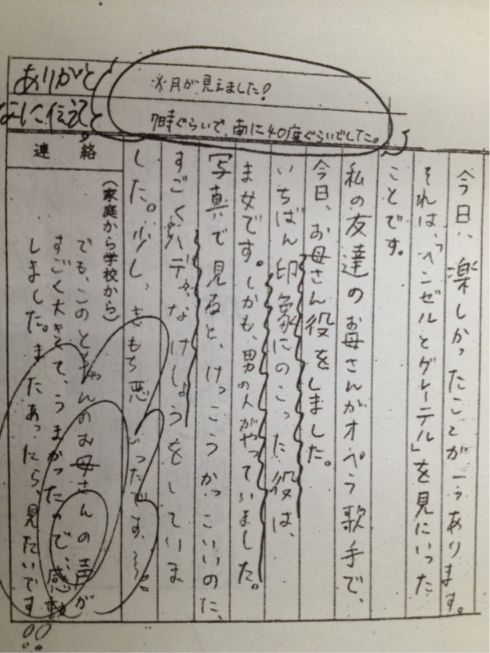 ありがとう
※月が見えました!
7時ぐらいで、南に40度ぐらいでした。
今日、楽しかったことが一つあります。
それは、「ヘンゼルとグレーテル」を見にいった
ことです。
私の友達のお母さんがオペラ歌手で、
今日、お母さん役をしました。
いちばん印象にのこった役は、
ま女です。しかも、男の人がやっていました。
写真で見ると、けっこうかっこいいのに、
すごくハデなけしょうをしていま
した。少し、きもち悪かったです。
連絡
(家庭から学校から)
でも、このともちゃんのお母さんの声が
すごく大きくて、うまかったので、感動
しました。またあったら、見たいです